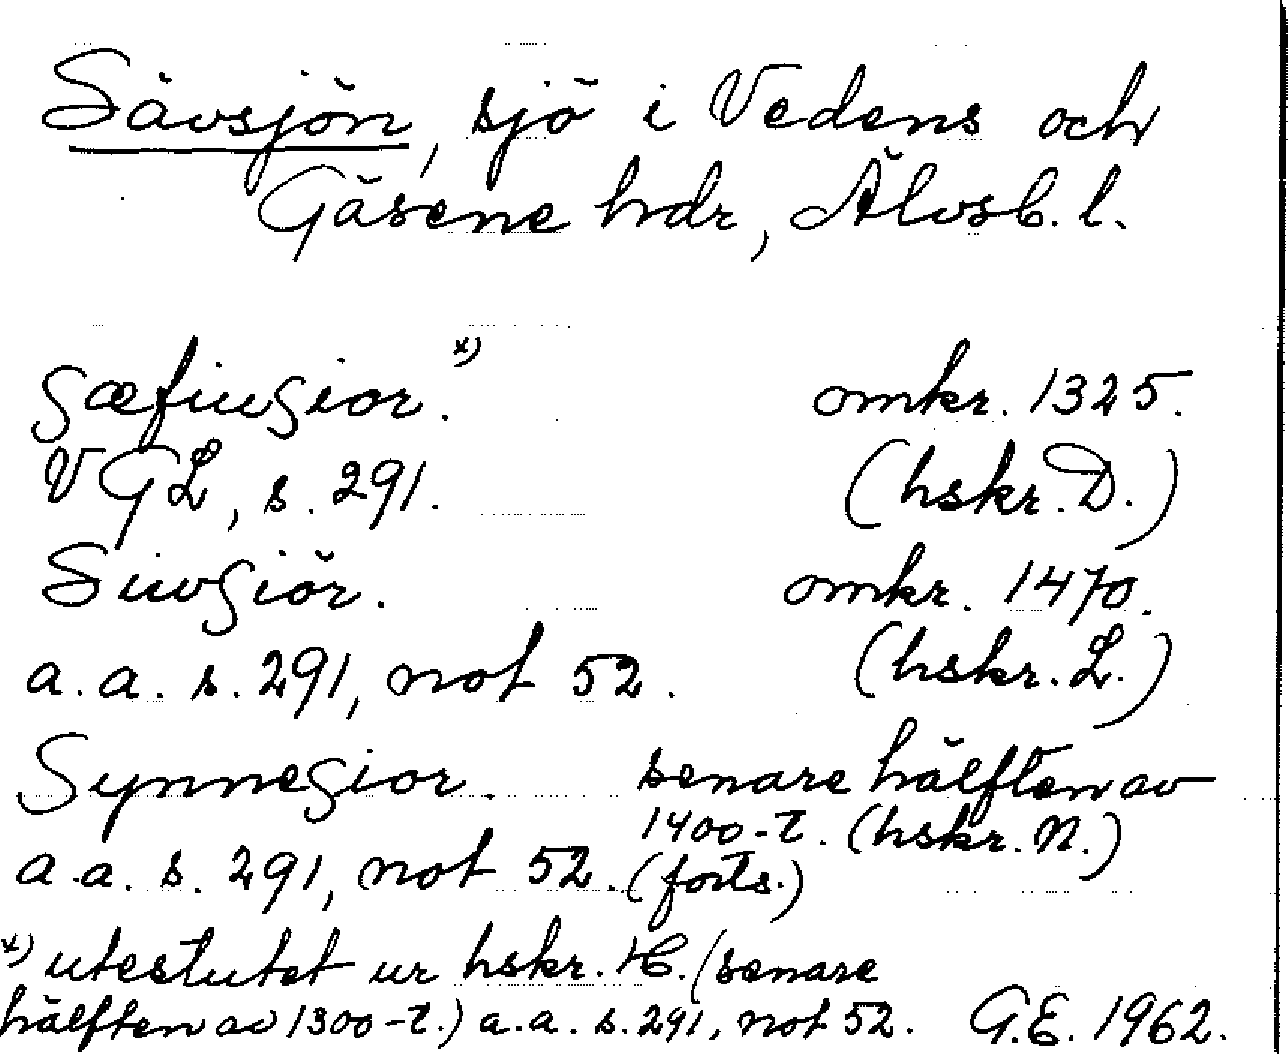 Sävsjön, sjö i Vedens och
Gäsene hdr, Älvsb. l.
sæfinsior. x)
omkr. 1325.
VGL, s. 291.
(hskr. D.)
Siwsiör.
omkr. 1470.
a.a. s. 291, not 52.
(hskr. L.)
Synnesior.
senare hälften av
1400-t. (hskr. N.)
a.a. s. 291, not 52. (forts.)
x) utestutet ur hskr. H. (senare
hälften av 1300-t.) a.a. s. 291, not 52. G.E. 1962.